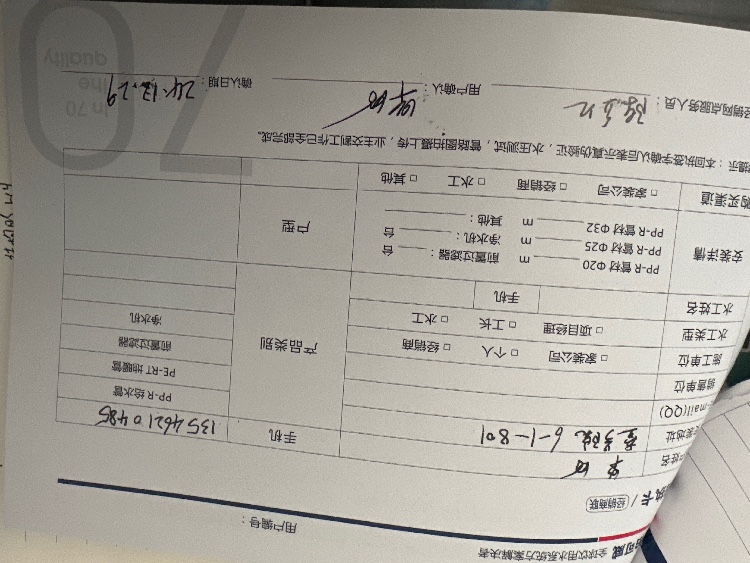 全球饮用水系统方案解决者
用户编号：
执卡 / 经销商联
姓名
手机 13546210485
地址 6-1-801
-mail(QQ)
销售单位
施工单位 □ 家装公司 □ 个人 □ 经销商
水工类型 □ 项目经理 □ 工长 □ 水工
水工姓名 手机
产品类别
PP-R 给水管
PE-RT 地暖管
前置过滤器
净水机
安装详情
PP-R 管材 Φ20 m 前置过滤器： 台
PP-R 管材 Φ25 m 净水机： 台
PP-R 管材 Φ32 m 其他：
户型
购买渠道 □ 家装公司 □ 经销商 □ 水工 □ 其他
提示：本回执签字确认后表示真伪验证，水压测试，管路图拍摄上传，业主交割工作已全部完成。
经销网点服务人员： 用户确认： 确认日期：24.12.29
In 70
the
quality
70